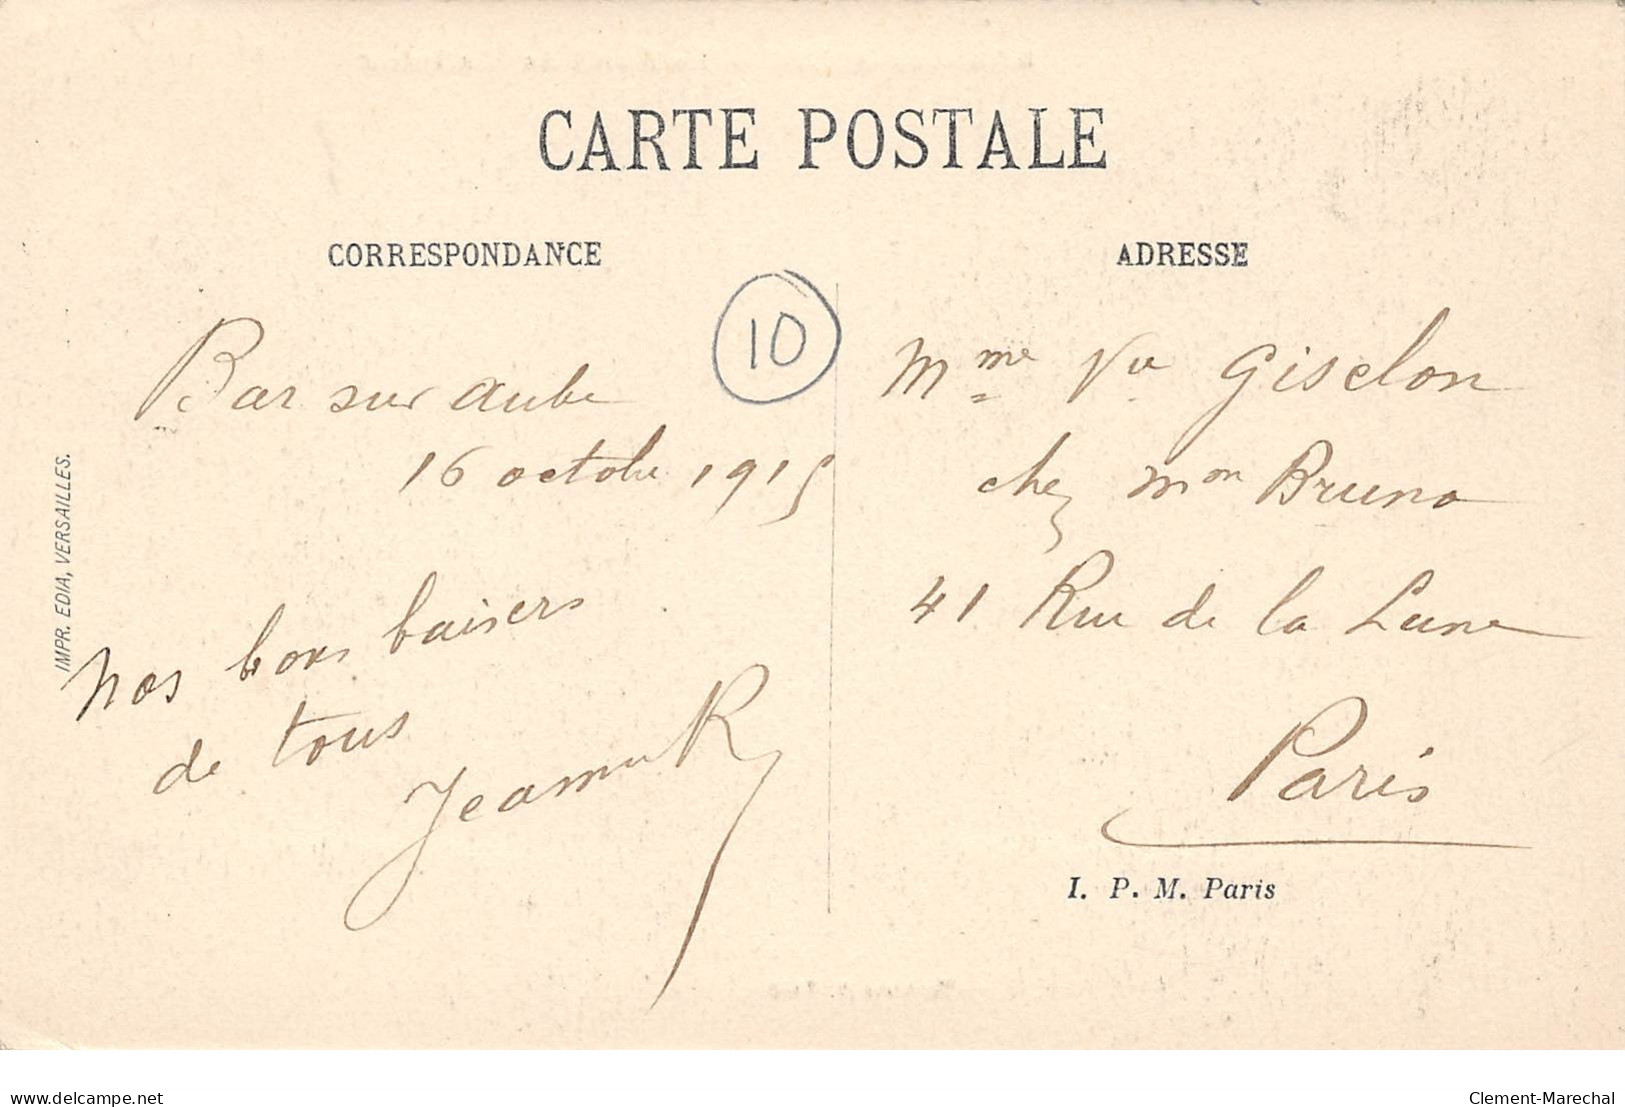 CARTE POSTALE
CORRESPONDANCE
ADRESSE
10
Bar sur aube
16 octobre 1915
nos bons baisers
de tous
Jeanne R
Mme Vve Giselon
chez mon Bruno
41 Rue de la Lune
Paris
I. P. M. Paris
IMPR. EDIA, VERSAILLES.
delcampe.net
Clement-Marechal